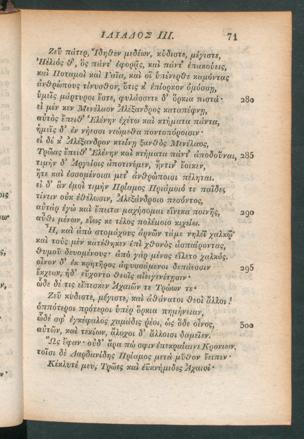 ΙΛΙΑΔΟΣ III. 71
Ζεῦ πάτερ, Ἴδηθεν μεδέων, κύδιστε, μέγιστε,
Ἠέλιός θ', ὃς πάντ' ἐφορᾷς, καὶ πάντ' ἐπακούεις,
καὶ Ποταμοὶ καὶ Γαῖα, καὶ οἳ ὑπένερθε καμόντας
ἀνθρώπους τίνυσθον, ὅτις κ' ἐπίορκον ὀμόσσῃ,
ὑμεῖς μάρτυροι ἔστε, φυλάσσετε δ' ὅρκια πιστά· 280
εἰ μέν κεν Μενέλαον Ἀλέξανδρος καταπέφνῃ,
αὐτὸς ἔπειθ' Ἑλένην ἐχέτω καὶ κτήματα πάντα,
ἡμεῖς δ' ἐν νήεσσι νεώμεθα ποντοπόροισιν·
εἰ δέ κ' Ἀλέξανδρον κτείνῃ ξανθὸς Μενέλαος,
Τρῶας ἔπειθ' Ἑλένην καὶ κτήματα πάντ' ἀποδοῦναι, 285
τιμὴν δ' Ἀργείοις ἀποτινέμεν, ἥντιν' ἔοικεν,
ἥτε καὶ ἐσσομένοισι μετ' ἀνθρώποισι πέληται.
εἰ δ' ἂν ἐμοὶ τιμὴν Πρίαμος Πριάμοιό τε παῖδες
τίνειν οὐκ ἐθέλωσιν, Ἀλεξάνδροιο πεσόντος,
αὐτὰρ ἐγὼ καὶ ἔπειτα μαχήσομαι εἵνεκα ποινῆς, 290
αὖθι μένων, εἵως κε τέλος πολέμοιο κιχείω.
Ἦ, καὶ ἀπὸ στομάχους ἀρνῶν τάμε νηλέϊ χαλκῷ·
καὶ τοὺς μὲν κατέθηκεν ἐπὶ χθονὸς ἀσπαίροντας,
θυμοῦ δευομένους· ἀπὸ γὰρ μένος εἵλετο χαλκός.
οἶνον δ' ἐκ κρητῆρος ἀφυσσάμενοι δεπάεσσιν 295
ἔκχεον, ἠδ' εὔχοντο θεοῖς αἰειγενέτῃσιν·
ὧδε δέ τις εἴπεσκεν Ἀχαιῶν τε Τρώων τε·
Ζεῦ κύδιστε, μέγιστε, καὶ ἀθάνατοι θεοὶ ἄλλοι!
ὁππότεροι πρότεροι ὑπὲρ ὅρκια πημήνειαν,
ὧδέ σφ' ἐγκέφαλος χαμάδις ῥέοι, ὡς ὅδε οἶνος, 300
αὐτῶν, καὶ τεκέων, ἄλοχοι δ' ἄλλοισι δαμεῖεν.
Ὣς ἔφαν· οὐδ' ἄρα πώ σφιν ἐπεκραίαινε Κρονίων.
τοῖσι δὲ Δαρδανίδης Πρίαμος μετὰ μῦθον ἔειπεν·
Κέκλυτέ μευ, Τρῶες καὶ ἐϋκνήμιδες Ἀχαιοί·